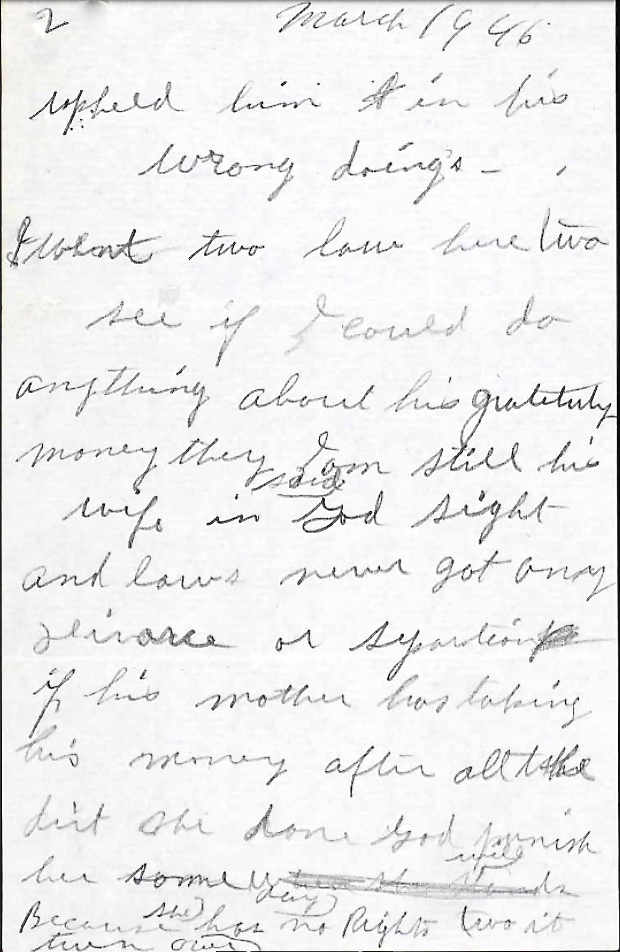 2 March 1946
upheld him in his
wrong doings -
I went two law here two
see if I could do
anything about his gratetuty
money they said I am still his
wife in God sight
and laws never got any
divorce or separtion
if his mother has taking
his money after all the
dirt she done God will punish
her some day
Because she has no Rights two it
turn over